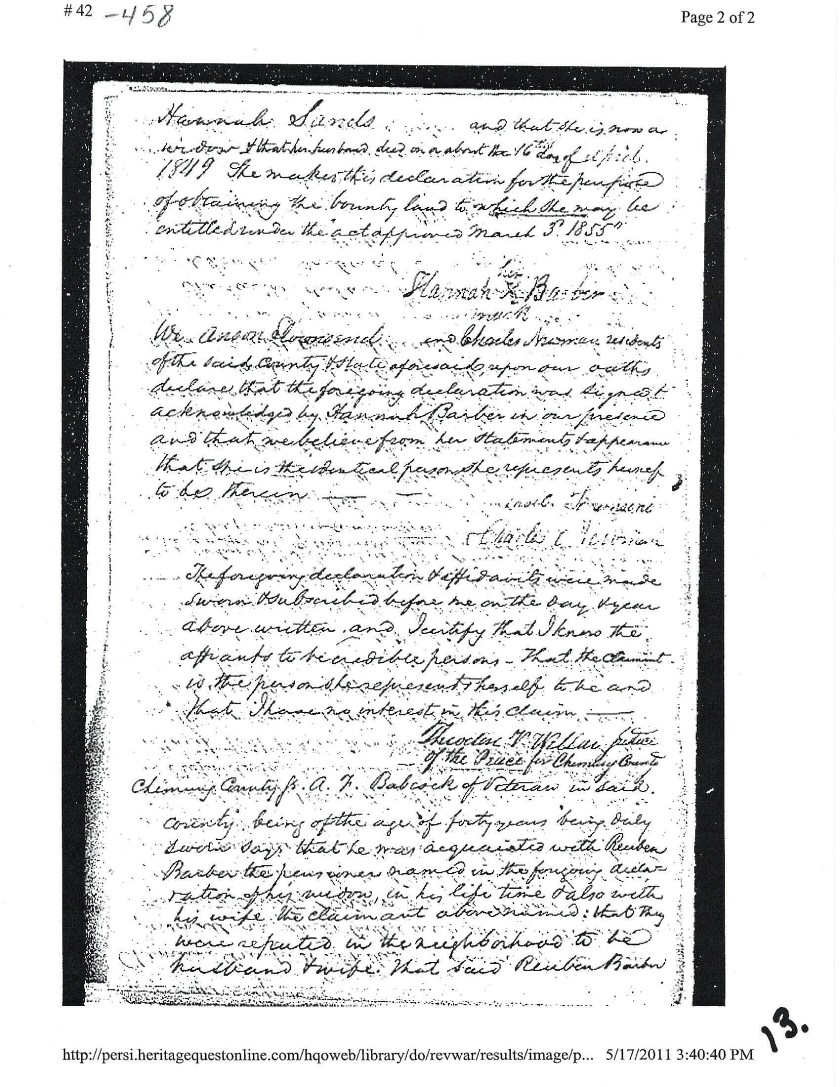 # 42 -458
Page 2 of 2
Hannah Sands and that she is now a
widow & that her husband died on or about the 16th day of April
1849 She makes this declaration for the purpose
of obtaining the bounty land to which she may be
entitled under the "act approved March 3d 1855"
her
Hannah X Barber
mark
We Anson Townsend and Charles Newman residents
of the said County & State aforesaid, upon our oaths
declare that the foregoing declaration was signed &
acknowledged by Hannah Barber in our presence
and that we believe from her statements & appearance
that she is the identical person she represents herself
to be therein
Townsend
Charles C Newman
The foregoing declaration & affidavits were made
sworn & subscribed before me on the day & year
above written and I certify that I know the
affiants to be credible persons - That the claimant
is the person she represents herself to be and
that I have no interest in this claim
Justice
of the Peace for Chemung County
Chemung County ss. A. F. Babcock of Veteran in said
county being of the age of forty years being duly
sworn says that he was acquainted with Reuben
Barber the pensioner named in the foregoing decla-
ration of his widow, in his life time & also with
his wife the claimant above named: that they
were reputed in the neighborhood to be
husband & wife. That said Reuben Barber
13.
http://persi.heritagequestonline.com/hqoweb/library/do/revwar/results/image/p... 5/17/2011 3:40:40 PM